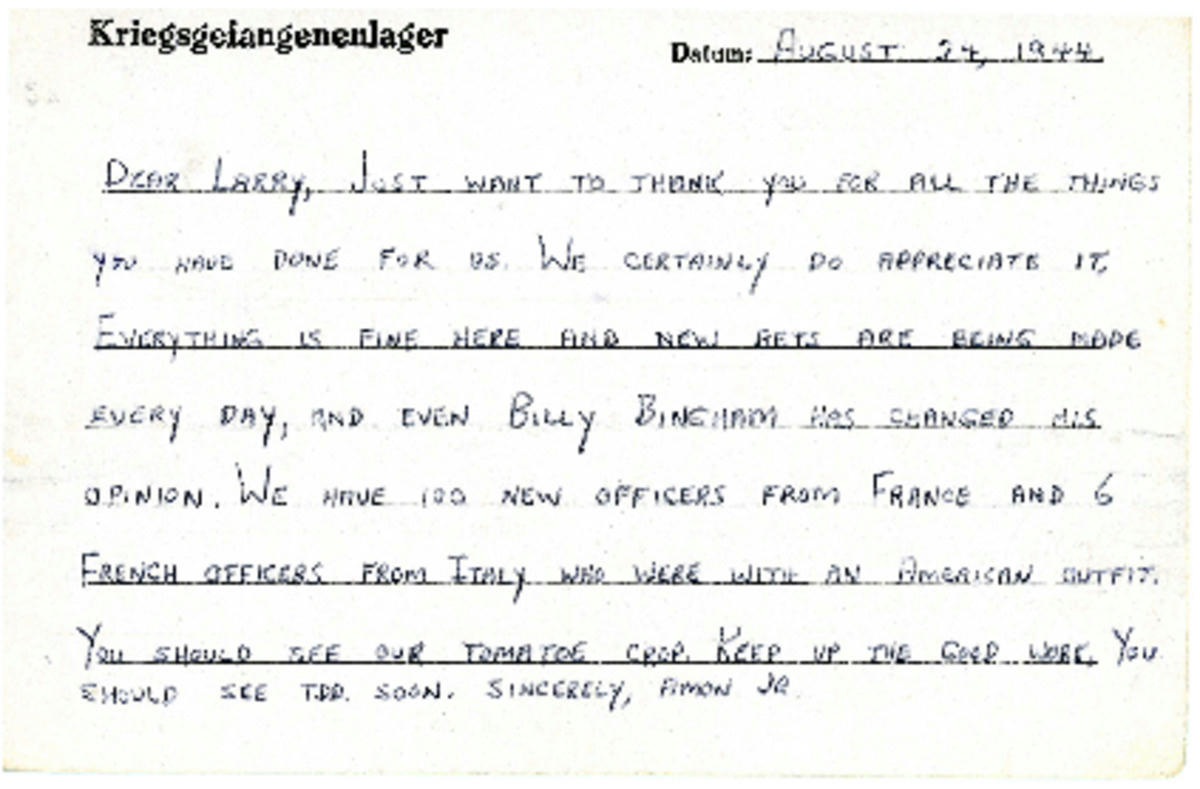 Kriegsgefangenenlager
Datum: AUGUST 24, 1944
DEAR LARRY, JUST WANT TO THANK YOU FOR ALL THE THINGS
YOU HAVE DONE FOR US. WE CERTAINLY DO APPRECIATE IT.
EVERYTHING IS FINE HERE AND NEW BETS ARE BEING MADE
EVERY DAY, AND EVEN BILLY BINGHAM HAS CHANGED HIS
OPINION. WE HAVE 100 NEW OFFICERS FROM FRANCE AND 6
FRENCH OFFICERS FROM ITALY WHO WERE WITH AN AMERICAN OUTFIT.
YOU SHOULD SEE OUR TOMATOE CROP. KEEP UP THE GOOD WORK. YOU
SHOULD SEE SOON. SINCERELY, AMON JR.